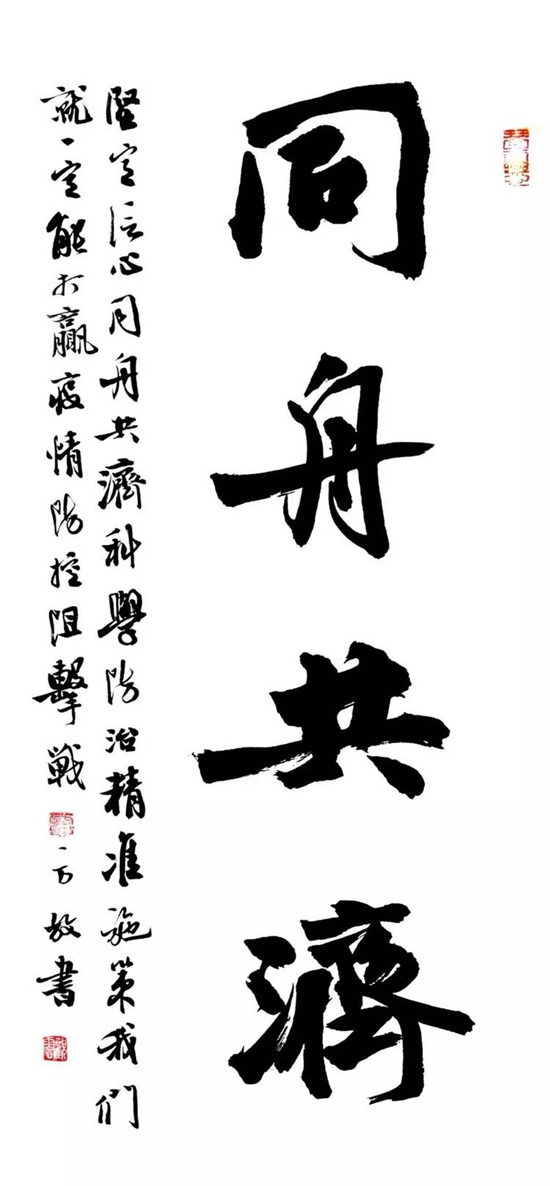 同舟共濟
堅定信心同舟共濟科學防治精准施策我們
就一定能打贏疫情防控阻擊戰
放書